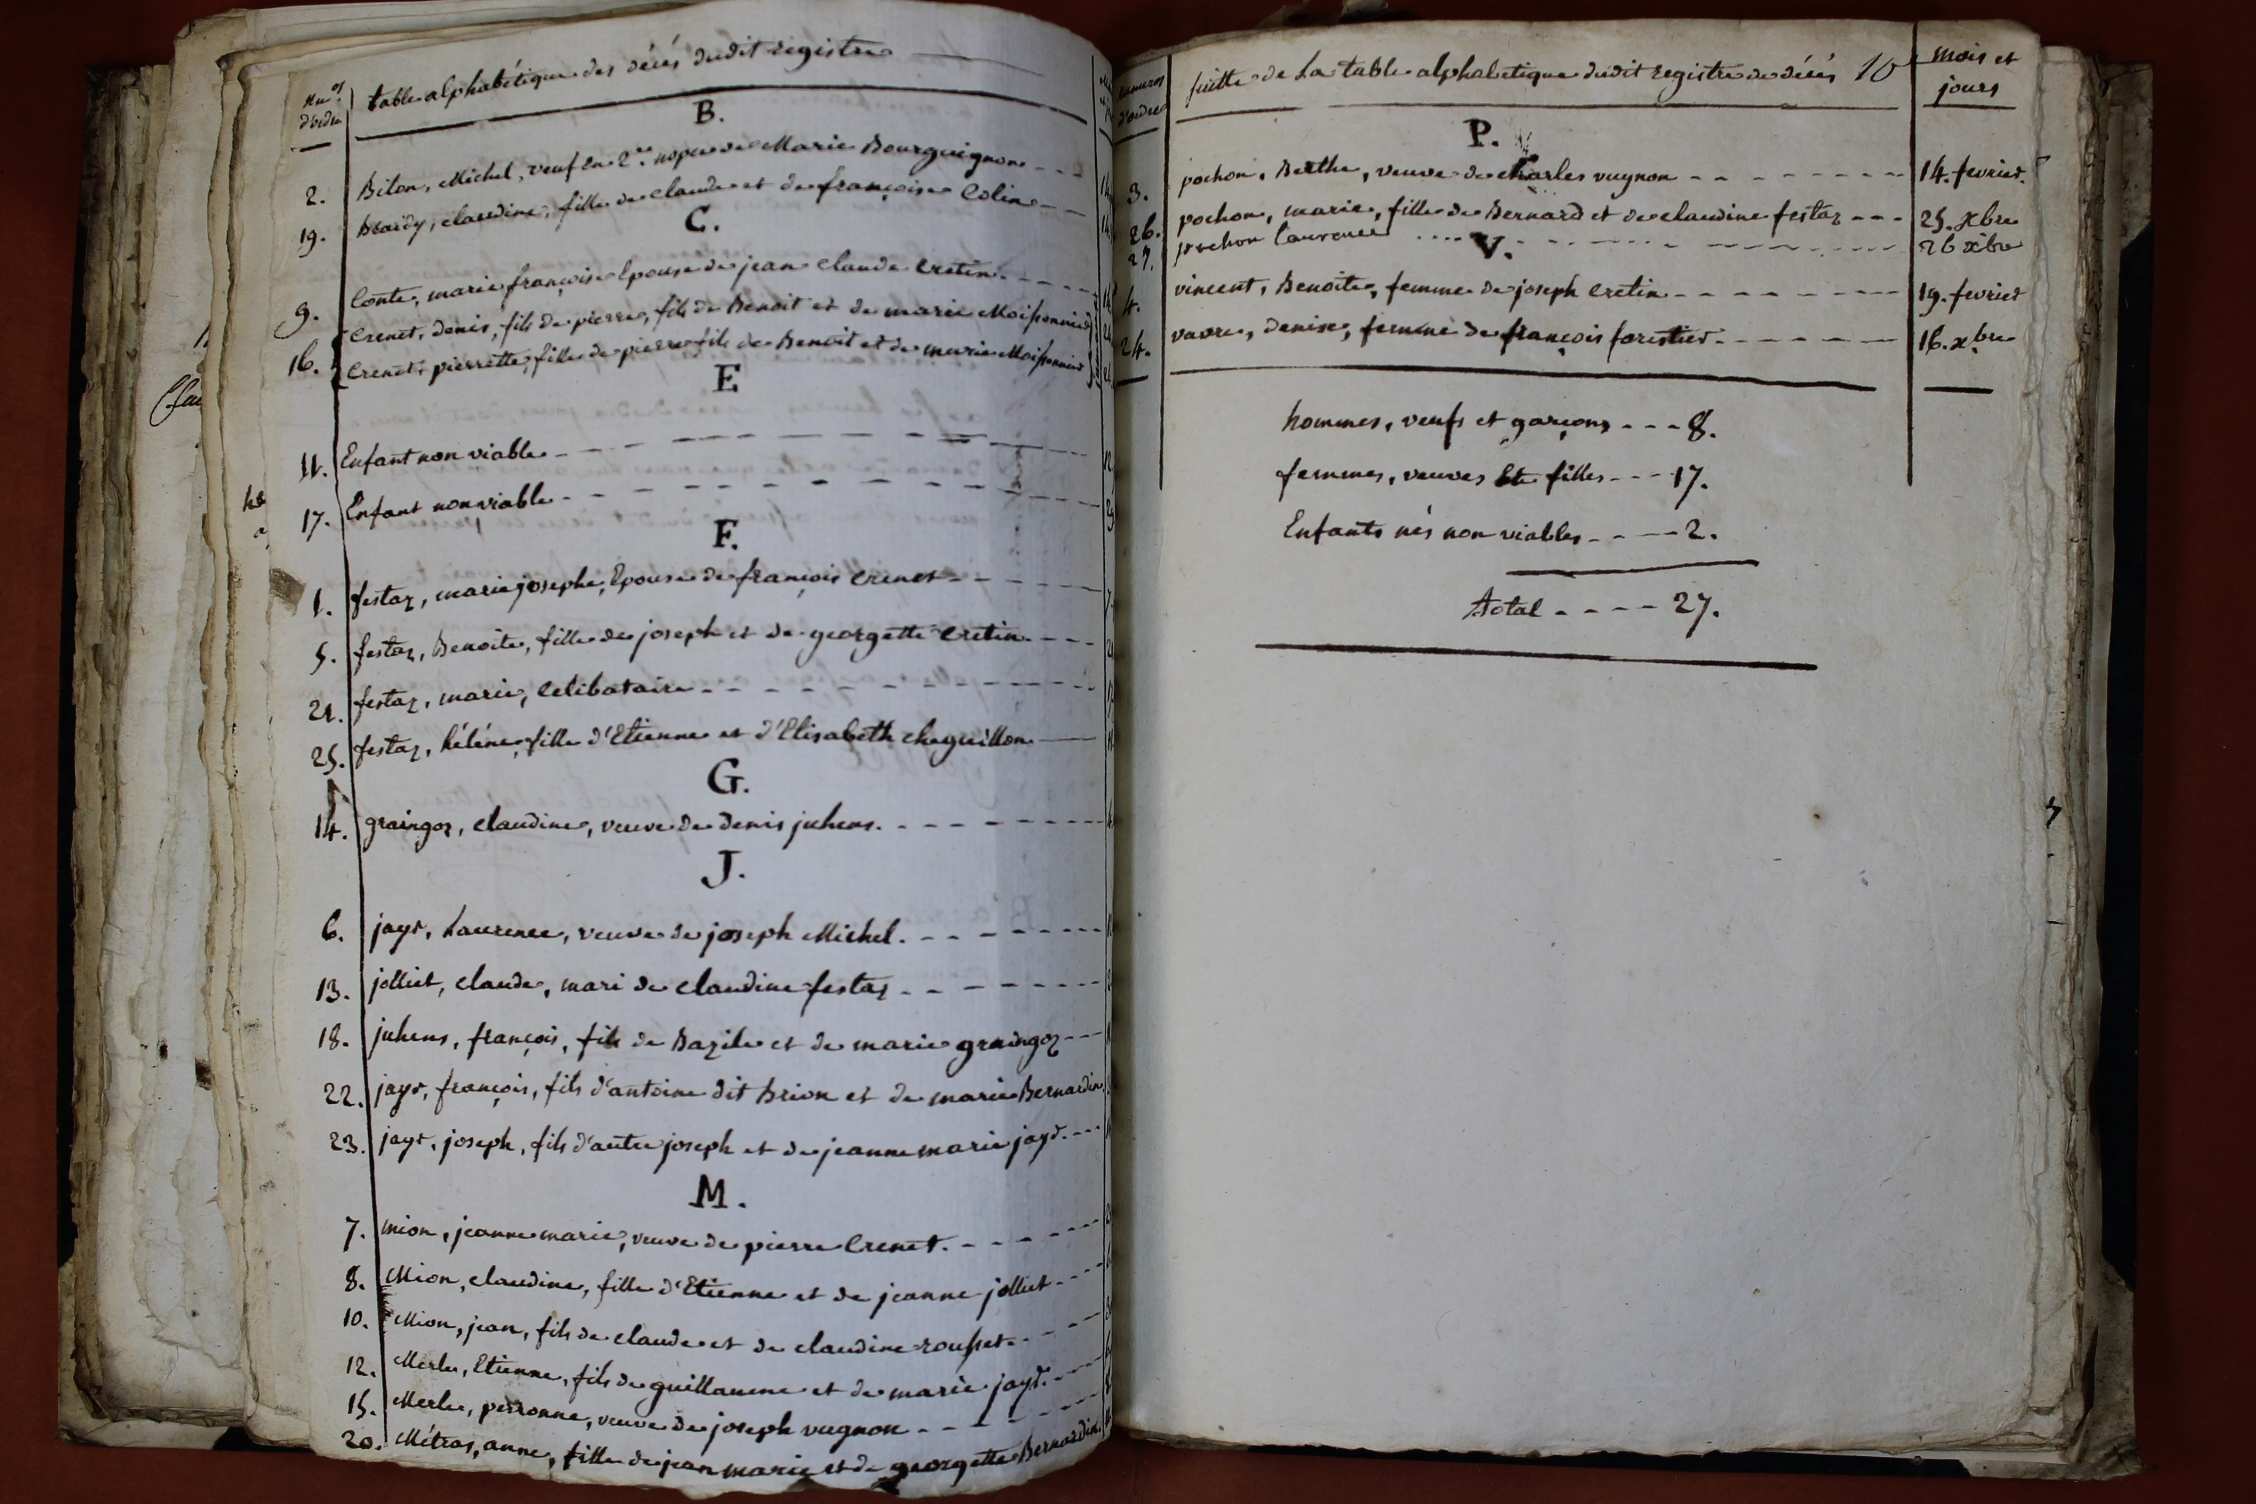 Nos d'ordre
table alphabétique des décés dudit registre
B.
2. Biton, Michel, veuf en 2es noces de Marie Bourguignon
19. Brardy, claudine, fille de claude et de françoise Colin
C.
9. Conte, marie françoise Epouse de jean claude Cretin
16. Crenet, denis, fils de pierre, fils de Benoit et de marie Moissonnier
Crenet, pierrette, fille de pierre fils de Benoit et de marie Moissonnier
E
11. Enfant non viable
17. Enfant non viable
F.
1. festaz, marie josephe, Epouse de françois Crenet
5. festaz, Benoite, fille de joseph et de georgette Cretin
21. festaz, marie, Celibataire
25. festaz, héléne, fille d'Etienne et d'Elisabeth cheguillon
G.
14. graingoz, claudine, veuve de denis juhens.
J.
6. jayr, Laurence, veuve de joseph Michel.
13. jolliet, claude, mari de claudine festaz
18. juhens, françois, fils de Bazile et de marie graingoz
22. jayr, françois, fils d'antoine dit brion et de marie Bernardin
23. jayr, joseph, fils d'autre joseph et de jeanne marie jayr.
M.
7. mion, jeanne marie, veuve de pierre Crenet.
8. Mion, claudine, fille d'Etienne et de jeanne jolliet
10. Mion, jean, fils de claude et de claudine rousset
12. Merle, Etienne, fils de guillaume et de marie jayr.
15. Merle, perronne, veuve de joseph vugnon
20. Métras, anne, fille de jean marie et de georgette Bernardin
numeros d'ordre
suitte de La table alphabetique dudit registre de décés 10
mois et
jours
P.
3. pochon, Berthe, veuve de charles vugnon 14. fevrier.
26. pochon, marie, fille de Bernard et de claudine festaz 25. xbre
27. pochon Laurence 26 xbre
V.
4. vincent, Benoite, femme de joseph Cretin 19. fevrier
24. vavre, denise, femme de françois forestier 16. xbre
hommes, veufs et garçons 8.
femmes, veuves Et filles 17.
Enfants nés non viables 2.
Total 27.